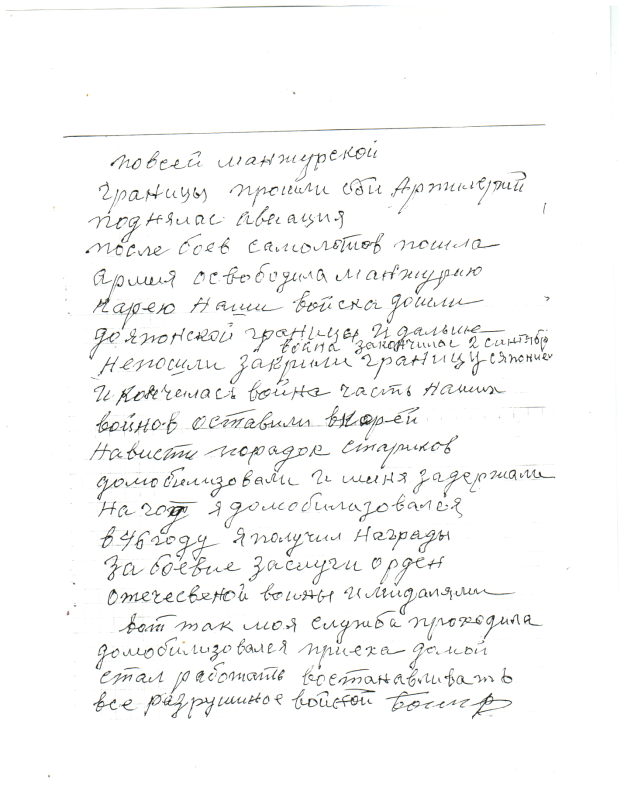 повсей манжурской
границы прошли бои Артилерий
поднялас авиация
после боев самолотов пошла
армия освободила манжурию
карею наши войска дошли
дояпонской границы И дальше
война закончилас 2 синтебр
Непошли закрыли границу сяпонией
И кончелась война часть наших
войнов оставили вкорей
Нависти порадок стариков
домобилизовали и миня задержали
на год я домобилизовался
в 46 году я получил Награды
За боевые заслуги орден
отечесвеной воины И мидалями
вот так моя служба проходила
домобилизовался приеха домой
стал работать востанавливать
все разрушиное войной